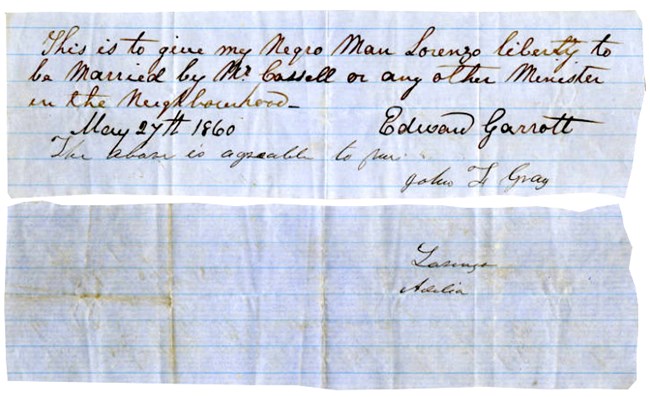 This is to give my Negro Man Lorenzo liberty to
be Married by Mr Cassell or any other Minister
in the Neighbourhood_
May 27th 1860 Edward Garrott
The above is agreeable to me
John F Gray
Lorenzo
Adelia